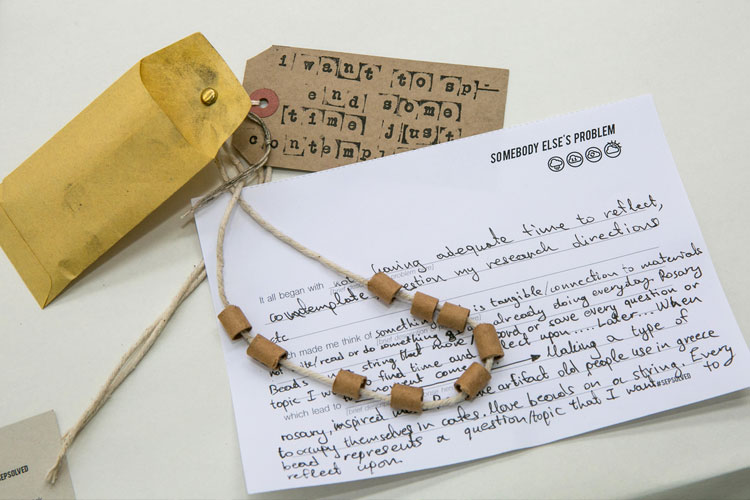 i want to sp-
end some
time just
contempl
SOMEBODY ELSE'S PROBLEM
It all began with not having adequate time to reflect,
contemplate question my research directions
etc
which made me think of something is tangible/connection to materials
write/read or do something already doing everyday. Rosary
Beads string that move or save every question or
topic I to find time and reflect upon.... Later... When
which lead to Making a type of
rosary, inspired artifact old people use in greece
to occupy themselves in cafes. Move beads on a string. Every
bead represents a question/topic that I want to
#SEPSOLVED
reflect upon.
SEPSOLVED